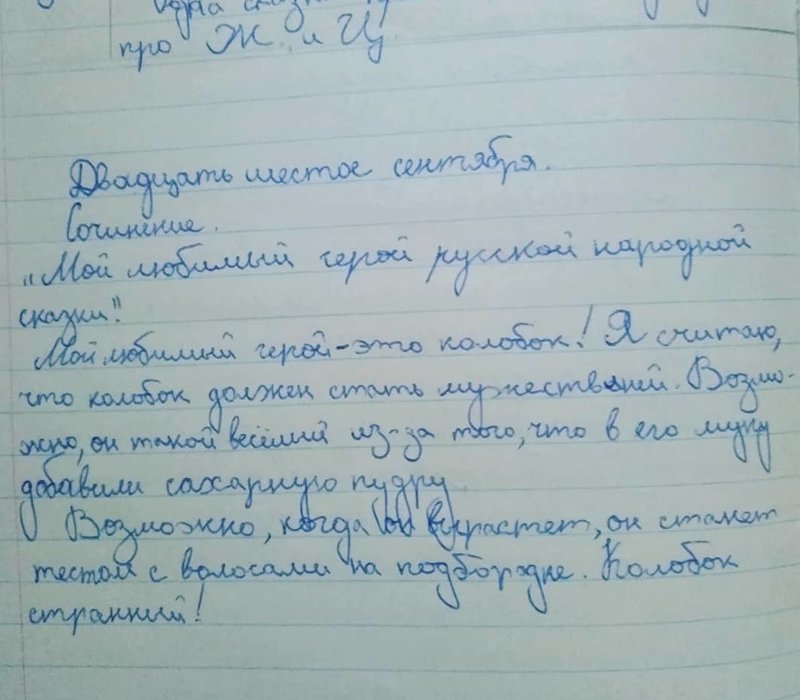 одна сказка
про Ж и Ц
Двадцать шестое сентября.
Сочинение.
„Мой любимый герой русской народной
сказки".
Мой любимый герой - это колобок! Я считаю,
что колобок должен стать мужествяней. Возмо-
жно, он такой весёлий из-за того, что в его муку
добавили сахарную пудру
Возможно, когда он вырастет, он станет
тестом с волосами на подбородке. Колобок
странний!